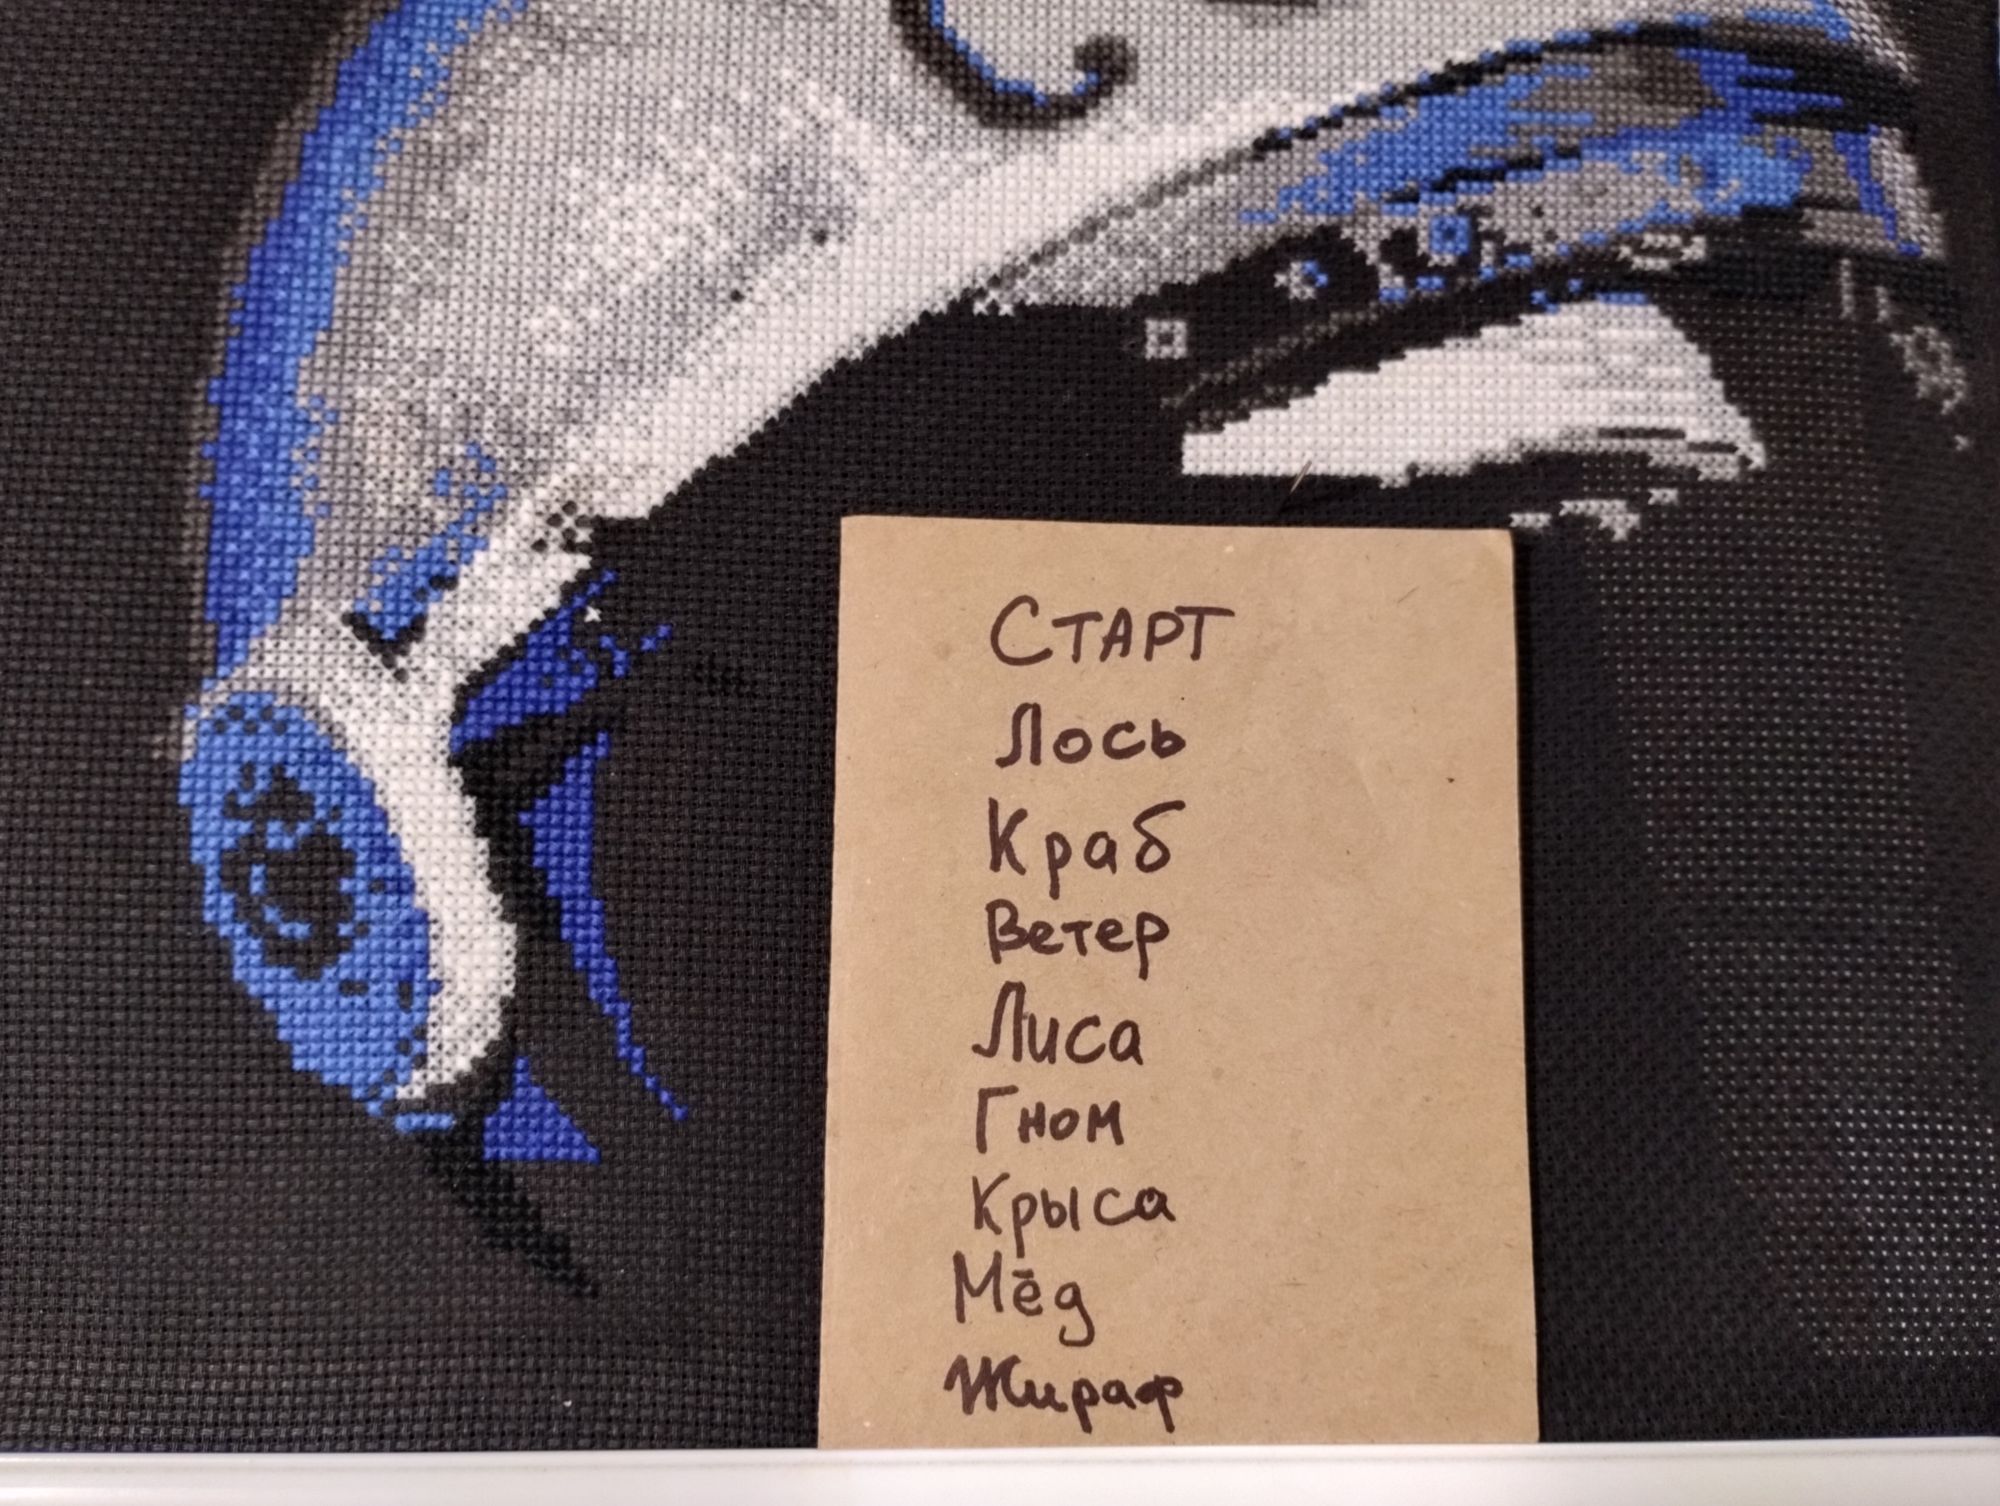 СТАРТ
Лось
Краб
Ветер
Лиса
Гном
Крыса
Мёд
Жираф